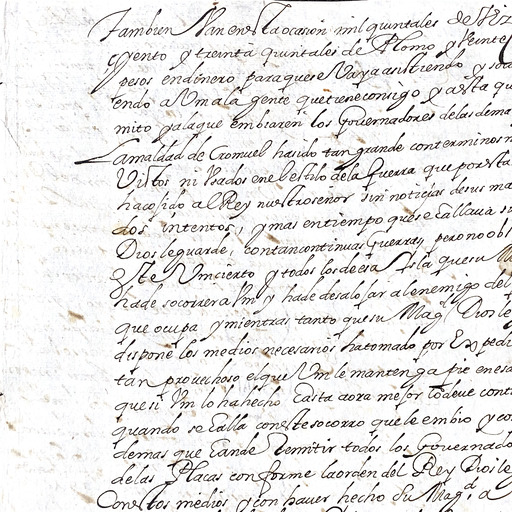 Tambien Van enesta ocasion mil quintales de Viz
çyento y treinta quintales de Plomo y Veinte
pesos endinero paraquese Vaya asistiendo y soco
endo a Vm a la gente que tiene consigo y a esta qu
mito y alaque embiaren los Governadores de las dema
La maldad de Cromuel ha sido tan grande con terminos n
Vistos ni Usados en el estilo de la Guerra que por esta
ha cojido al Rey nuestro señor sin noticias de sus ma
dos intentos, y mas en tiempo que se callava a su
Dios le guarde, con tan continuas Guerras, pero no obs
este Vm cierto y todos los de esa Isla que su M
ha de socorrer a Vm y ha de desalojar al enemigo del
que ocupa y mientras tanto que su Magd Dios le
dispone los medios necesarios ha tomado por Expedi
tan provechoso el que Vm le mantenga pie en esa
que si Vm lo ha hecho hasta aora mejor lo deve conti
quando se halla con este socorro que le embio y co
demas que hande Remitir todos los Governado
delas Placas conforme la orden del Rey Dios le
Con estos medios y con haver hecho Su Magd a